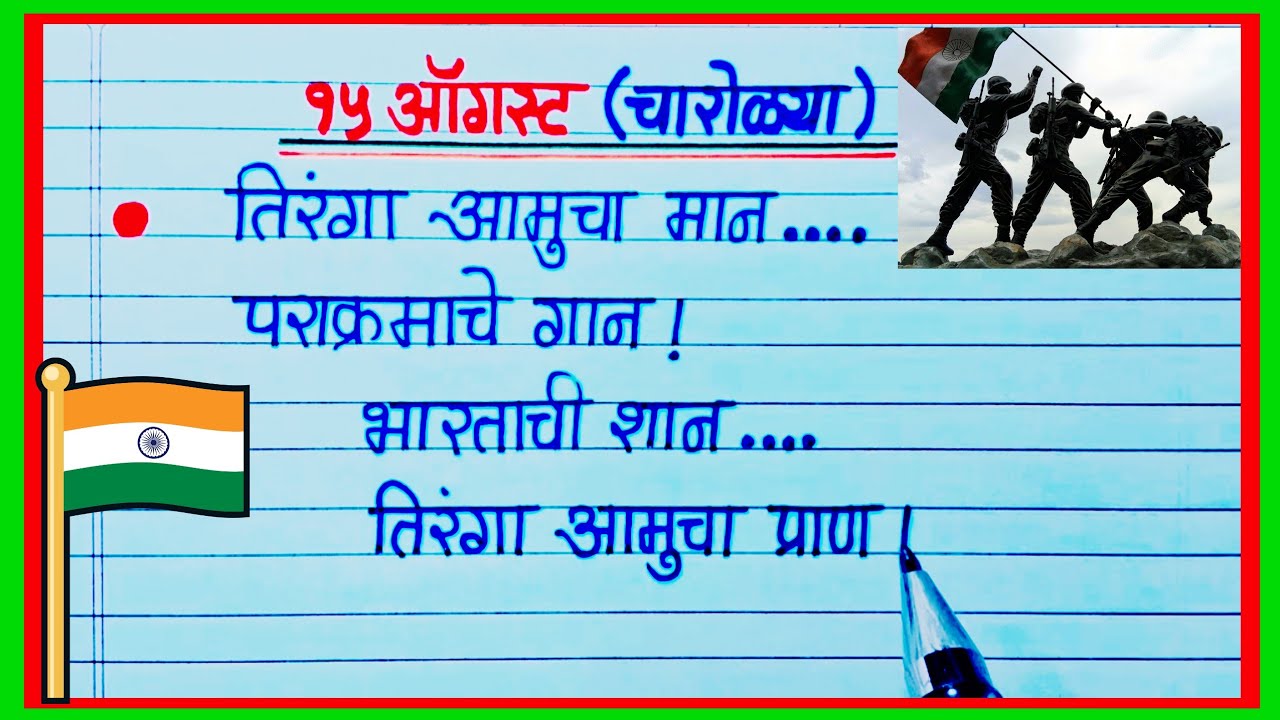 १५ ऑगस्ट (चारोळ्या)
तिरंगा आमुचा मान....
पराक्रमाचे गान!
भारताची शान....
तिरंगा आमुचा प्राण।